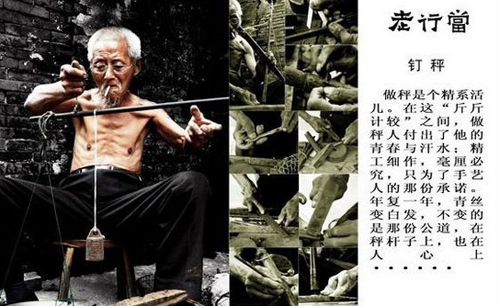 老行當
钉秤
做秤是个精系活
儿。在这“斤斤
计较”之间,做
秤人付出了他的
青春与汗水;精
工细作,毫厘必
究,只为了手艺
人的那份承诺。
年复一年,青丝
变白发,不变的
是那份公道,在
秤杆子上,也在
人心上
······